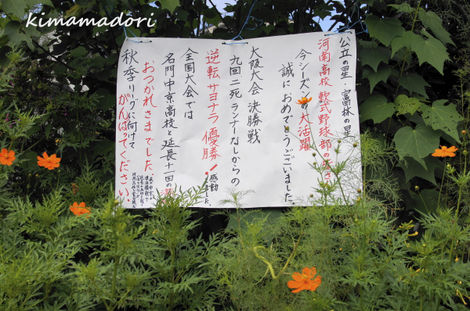 kimamadori
公立の星 富田林の星
河南高校 軟式野球部の皆さま
今シーズンの大活躍
誠におめでとうございました。
大阪大会 決勝戦
九回二死ランナーなしからの
逆転サヨナラ優勝!感動しました。
全国大会では
名門中京高校と延長十一回の
おつかれさまでした。
秋季リーグに向けて
がんばってください。